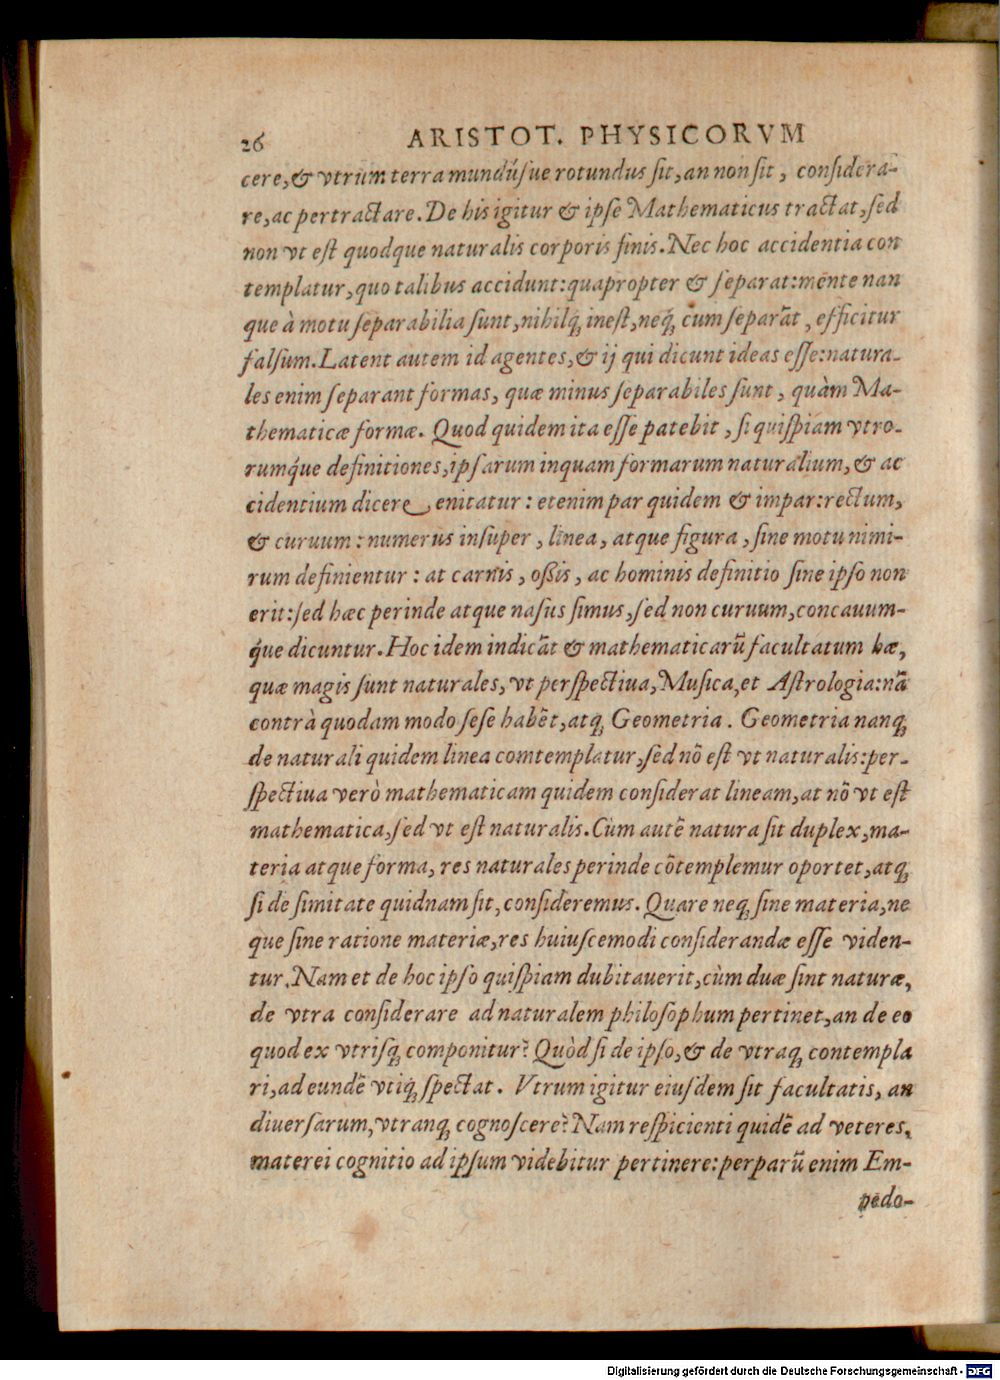 26 ARISTOT. PHYSICORVM
cere, & vtrum terra mundúsue rotundus sit, an non sit, considera-
re, ac pertractare. De his igitur & ipse Mathematicus tractat, sed
non vt est quodque naturalis corporis finis. Nec hoc accidentia con
templatur, quo talibus accidunt: quapropter & separat: mente nan
que à motu separabilia sunt, nihilq́; inest, neq́; cum separãt, efficitur
falsum. Latent autem id agentes, & ij qui dicunt ideas esse: natura-
les enim separant formas, quæ minus separabiles sunt, quàm Ma-
thematicæ formæ. Quod quidem ita esse patebit, si quispiam vtro-
rumq́ue definitiones, ipsarum inquam formarum naturalium, & ac
cidentium dicere enitatur: etenim par quidem & impar: rectum,
& curuum: numerus insuper, linea, atque figura, sine motu nimi-
rum definientur: at carnis, oßis, ac hominis definitio sine ipso non
erit: sed hæc perinde atque nasus simus, sed non curuum, concauum-
q́ue dicuntur. Hoc idem indicãt & mathematicarũ facultatum hæ,
quæ magis sunt naturales, vt perspectiua, Musica, et Astrologia: nã
contrà quodam modo sese habẽt, atq; Geometria. Geometria nanq;
de naturali quidem linea comtemplatur, sed nõ est vt naturalis: per-
spectiua verò mathematicam quidem considerat lineam, at nõ vt est
mathematica, sed vt est naturalis. Cùm autẽ natura sit duplex, ma-
teria atque forma, res naturales perinde cõtemplemur oportet, atq;
si de simitate quidnam sit, consideremus. Quare neq; sine materia, ne
que sine ratione materiæ, res huiuscemodi considerandæ esse viden-
tur. Nam et de hoc ipso quispiam dubitauerit, cùm duæ sint naturæ,
de vtra considerare ad naturalem philosophum pertinet, an de eo
quod ex vtrisq; componitur? Quòd si de ipso, & de vtraq; contempla
ri, ad eundẽ vtiq; spectat. Vtrum igitur eiusdem sit facultatis, an
diuersarum, vtranq; cognoscere? Nam respicienti quidẽ ad veteres,
materei cognitio ad ipsum videbitur pertinere: perparũ enim Em-
pedo-
Digitalisierung gefördert durch die Deutsche Forschungsgemeinschaft - DFG